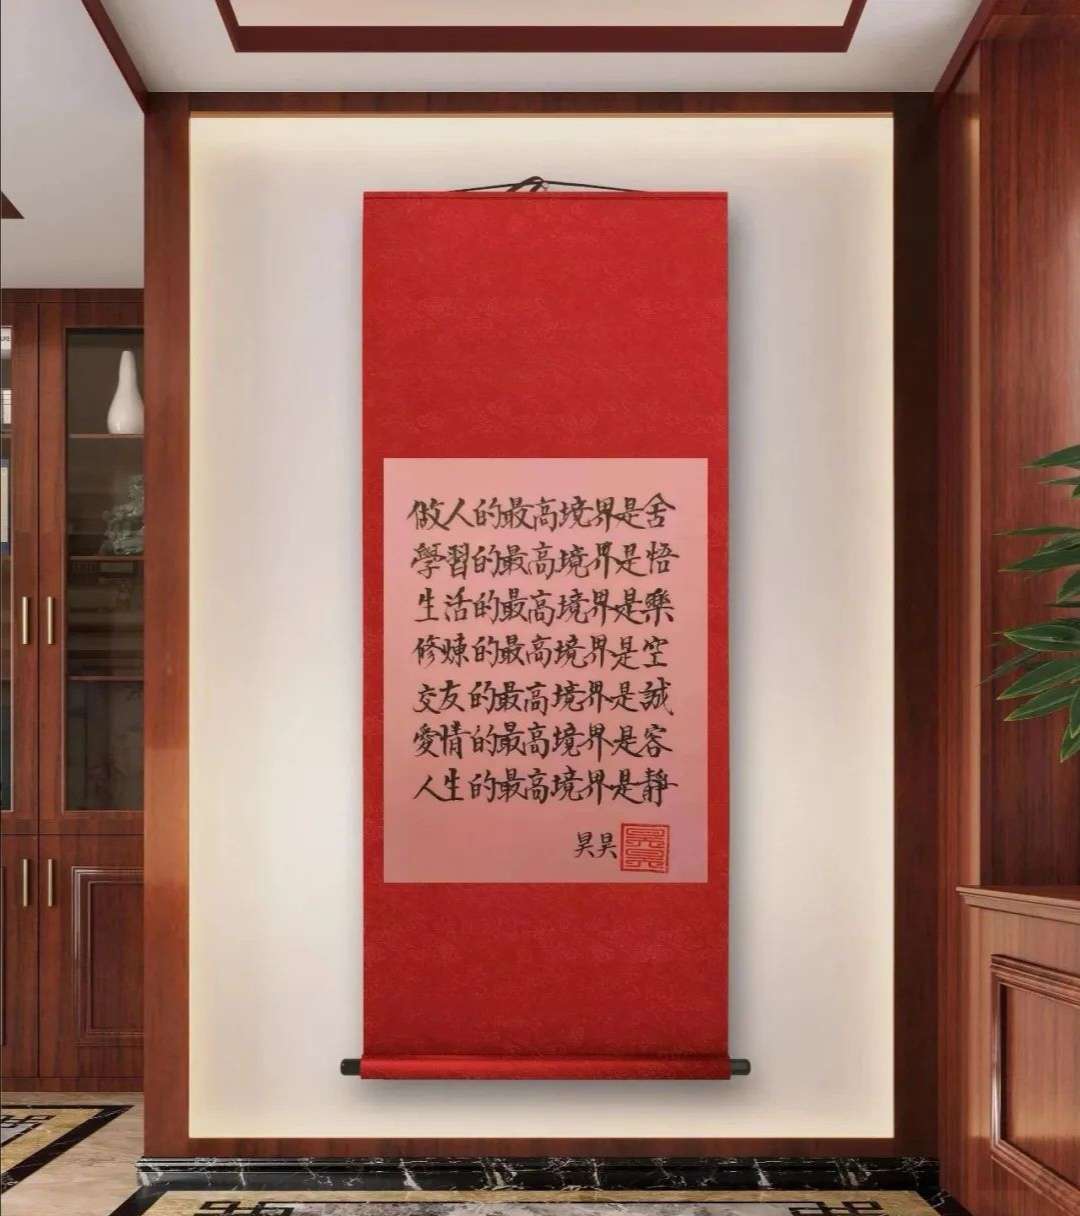 做人的最高境界是舍
學習的最高境界是悟
生活的最高境界是樂
修煉的最高境界是空
交友的最高境界是誠
愛情的最高境界是容
人生的最高境界是靜
昊昊
昊昊